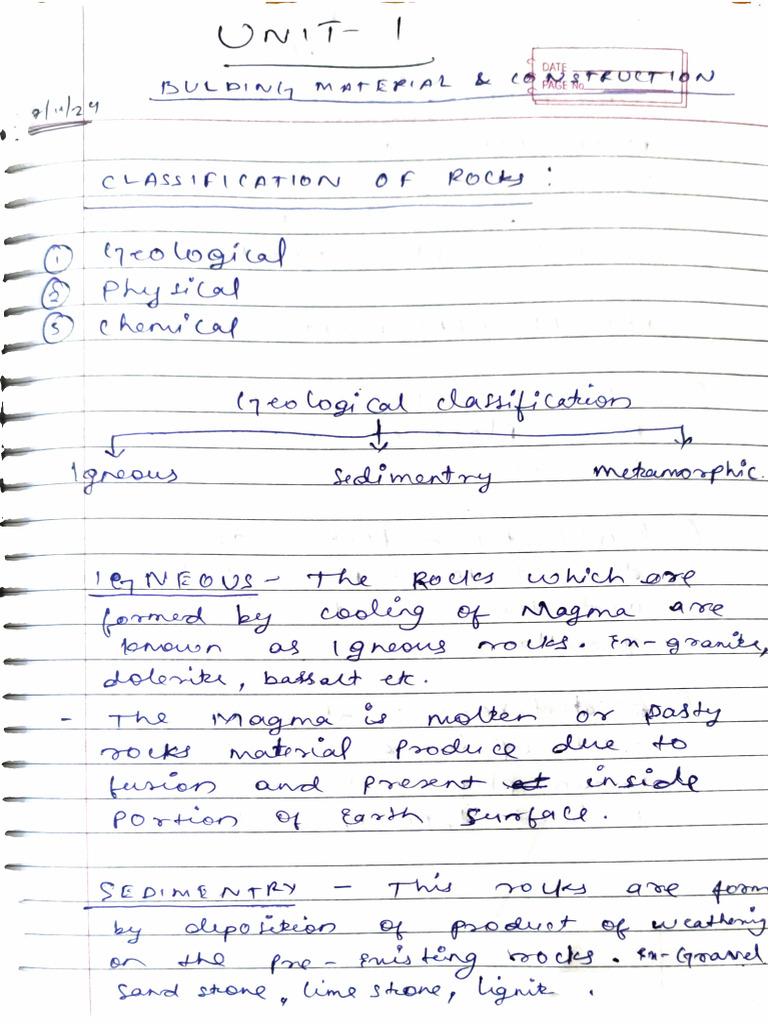 UNIT-1
DATE
PAGE No.
BULDING MATERIAL & CONSTRUCTION
CLASSIFICATION OF ROCKS:
① Geological
② Physical
③ chemical
Geological classification
Igneous sedimentry metamorphic.
IGNEOUS - The Rocks which are
formed by cooling of Magma are
known as Igneous rocks. Ex-granite,
dolerite, bassalt etc.
- The Magma is molten or pasty
rocks material produce due to
fusion and present inside
portion of Earth surface.
SEDIMENTRY - This rocks are form
by deposition of product of weathering
on the pre-existing rocks. Ex-Gravel
sand stone, lime stone, lignite.